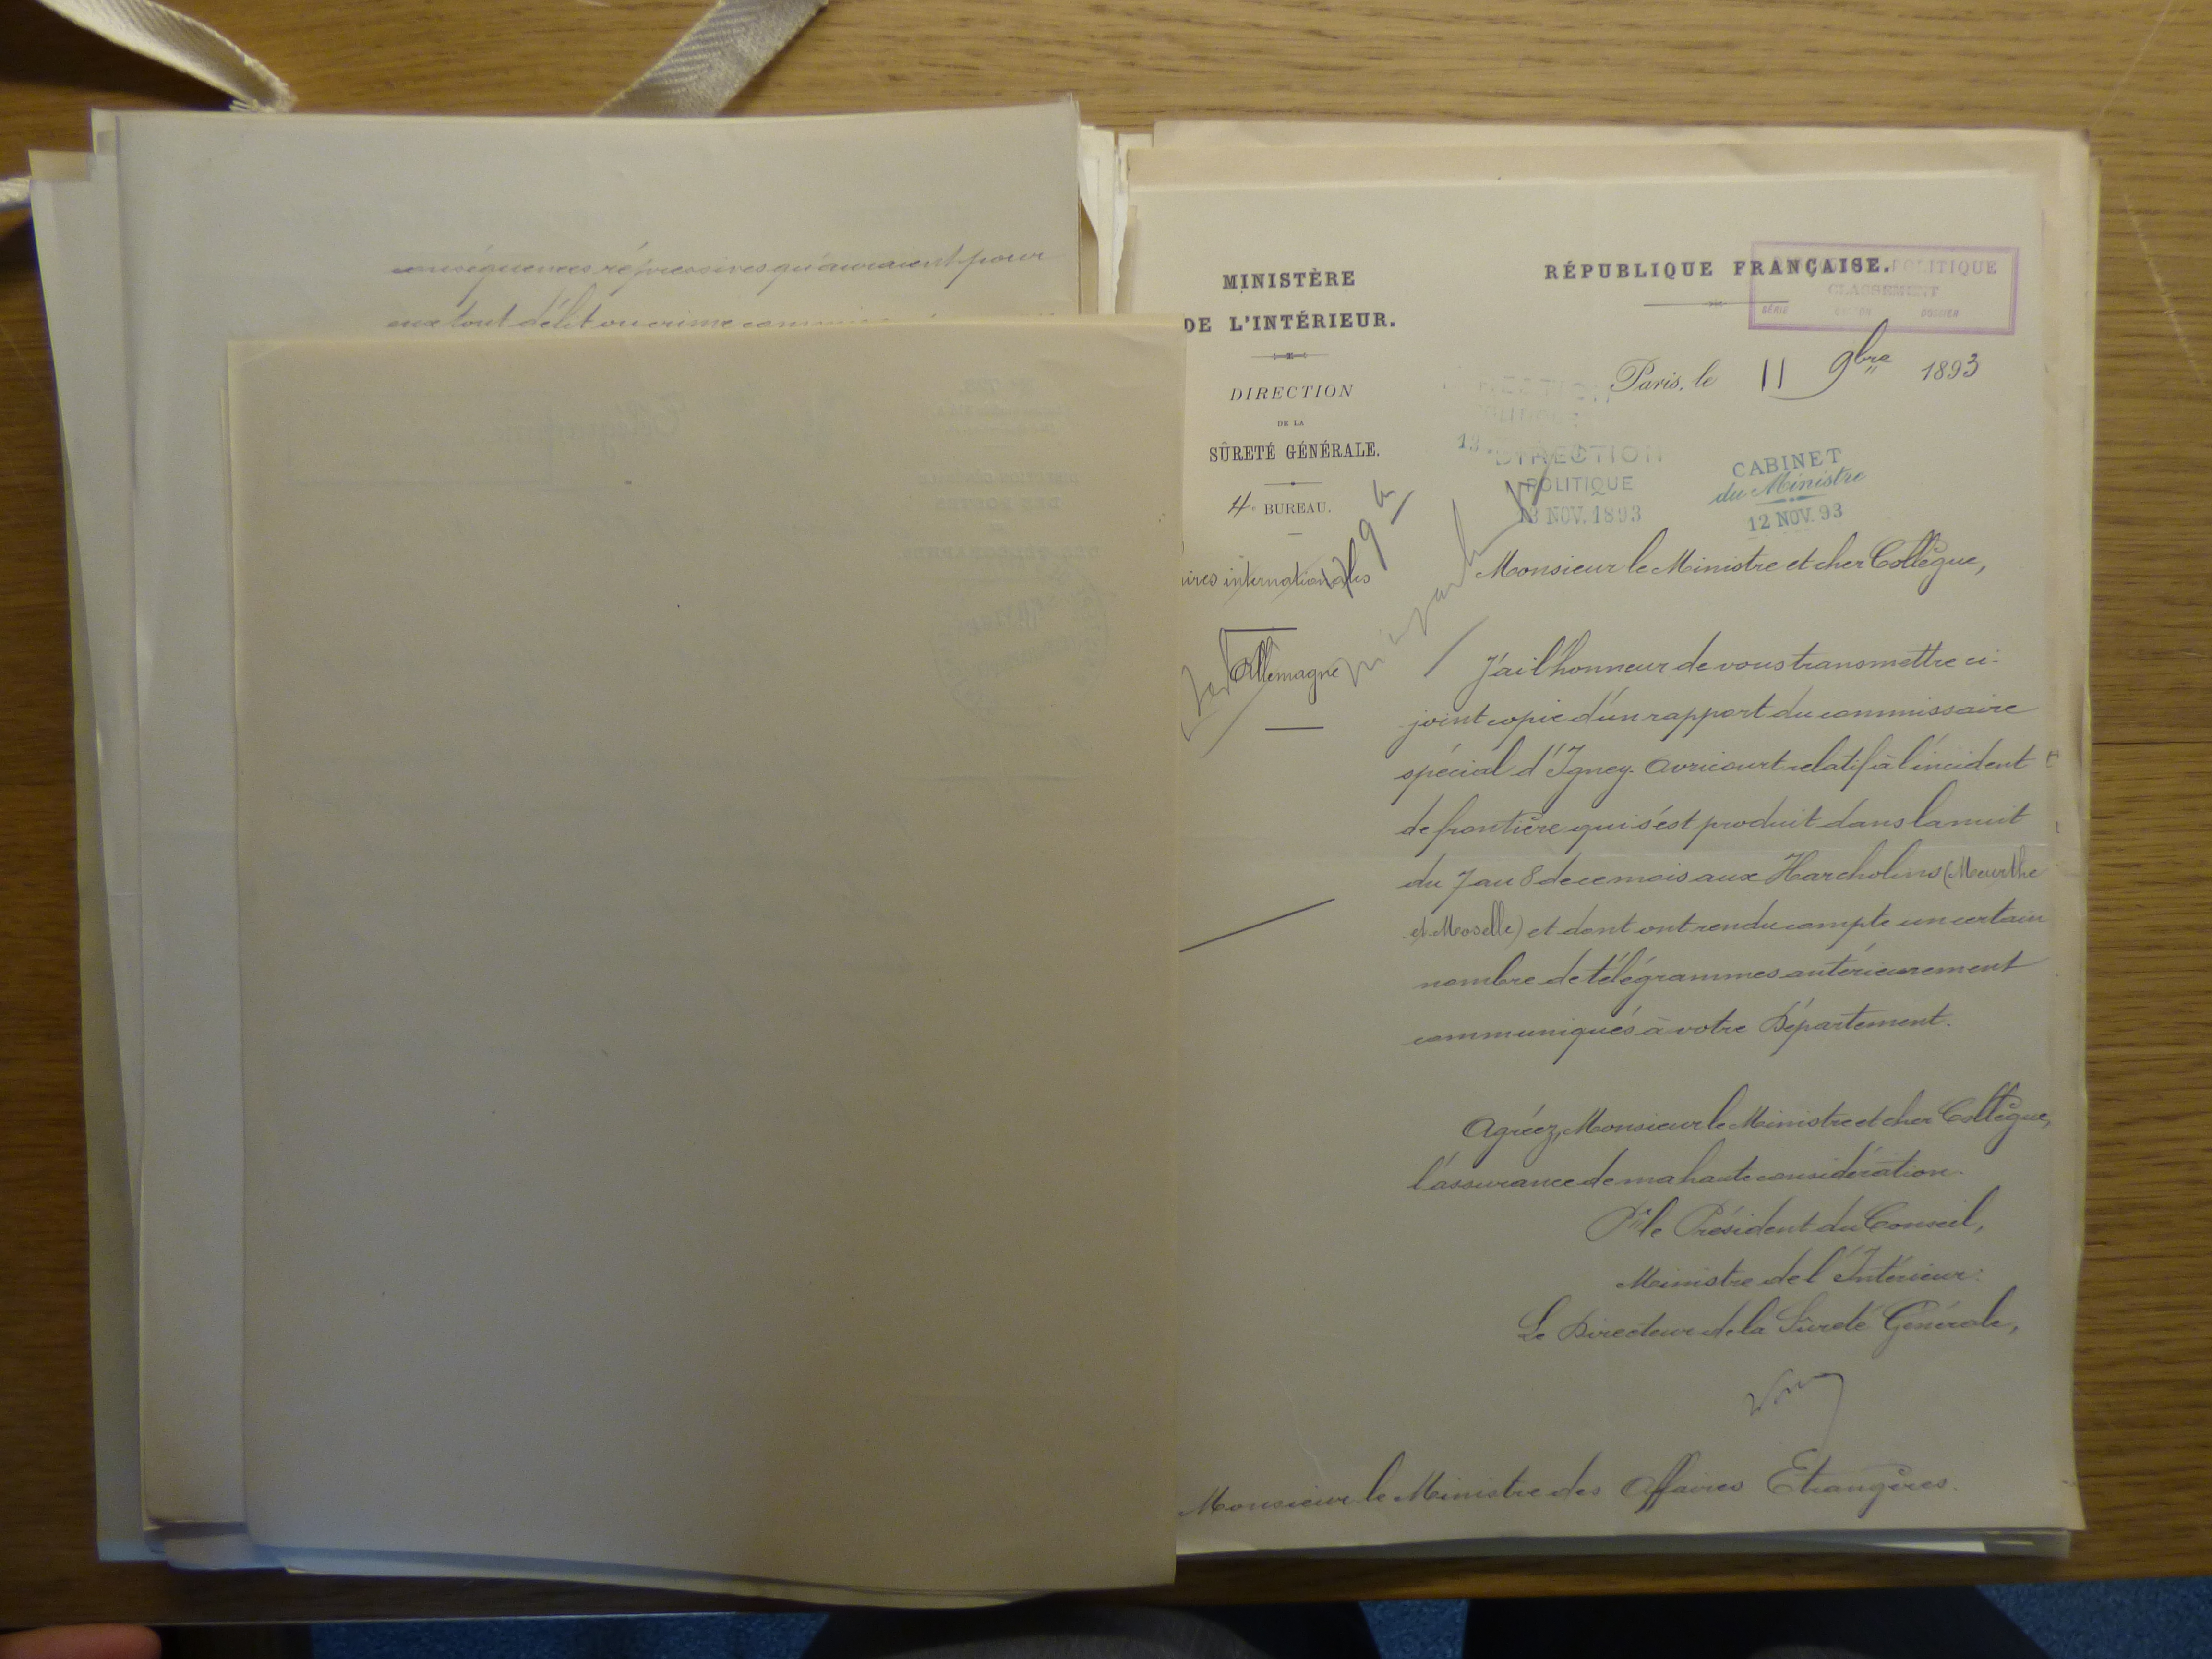 conséquences répressives qu'auraient pour
eux tout délit ou crime
MINISTÈRE
DE L'INTÉRIEUR.
DIRECTION
DE LA
SÛRETÉ GÉNÉRALE.
4e BUREAU.
ires internationales
Allemagne
RÉPUBLIQUE FRANÇAISE.
POLITIQUE
CLASSEMENT
SÉRIE CARTON DOSSIER
Paris, le 11 9bre 1893
DIRECTION
POLITIQUE
13 NOV. 1893
CABINET
du Ministre
12 NOV. 93
Monsieur le Ministre et cher Collègue,
J'ai l'honneur de vous transmettre ci-
joint copie d'un rapport du commissaire
spécial d'Igney-Avricourt relatif à l'incident
de frontière qui s'est produit dans la nuit
du 7 au 8 de ce mois aux Harcholins (Meurthe
et Moselle) et dont ont rendu compte un certain
nombre de télégrammes antérieurement
communiqués à votre Département.
Agréez, Monsieur le Ministre et cher Collègue,
l'assurance de ma haute considération.
Pr le Président du Conseil,
Ministre de l'Intérieur:
Le Directeur de la Sûreté Générale,
Monsieur le Ministre des Affaires Etrangères.